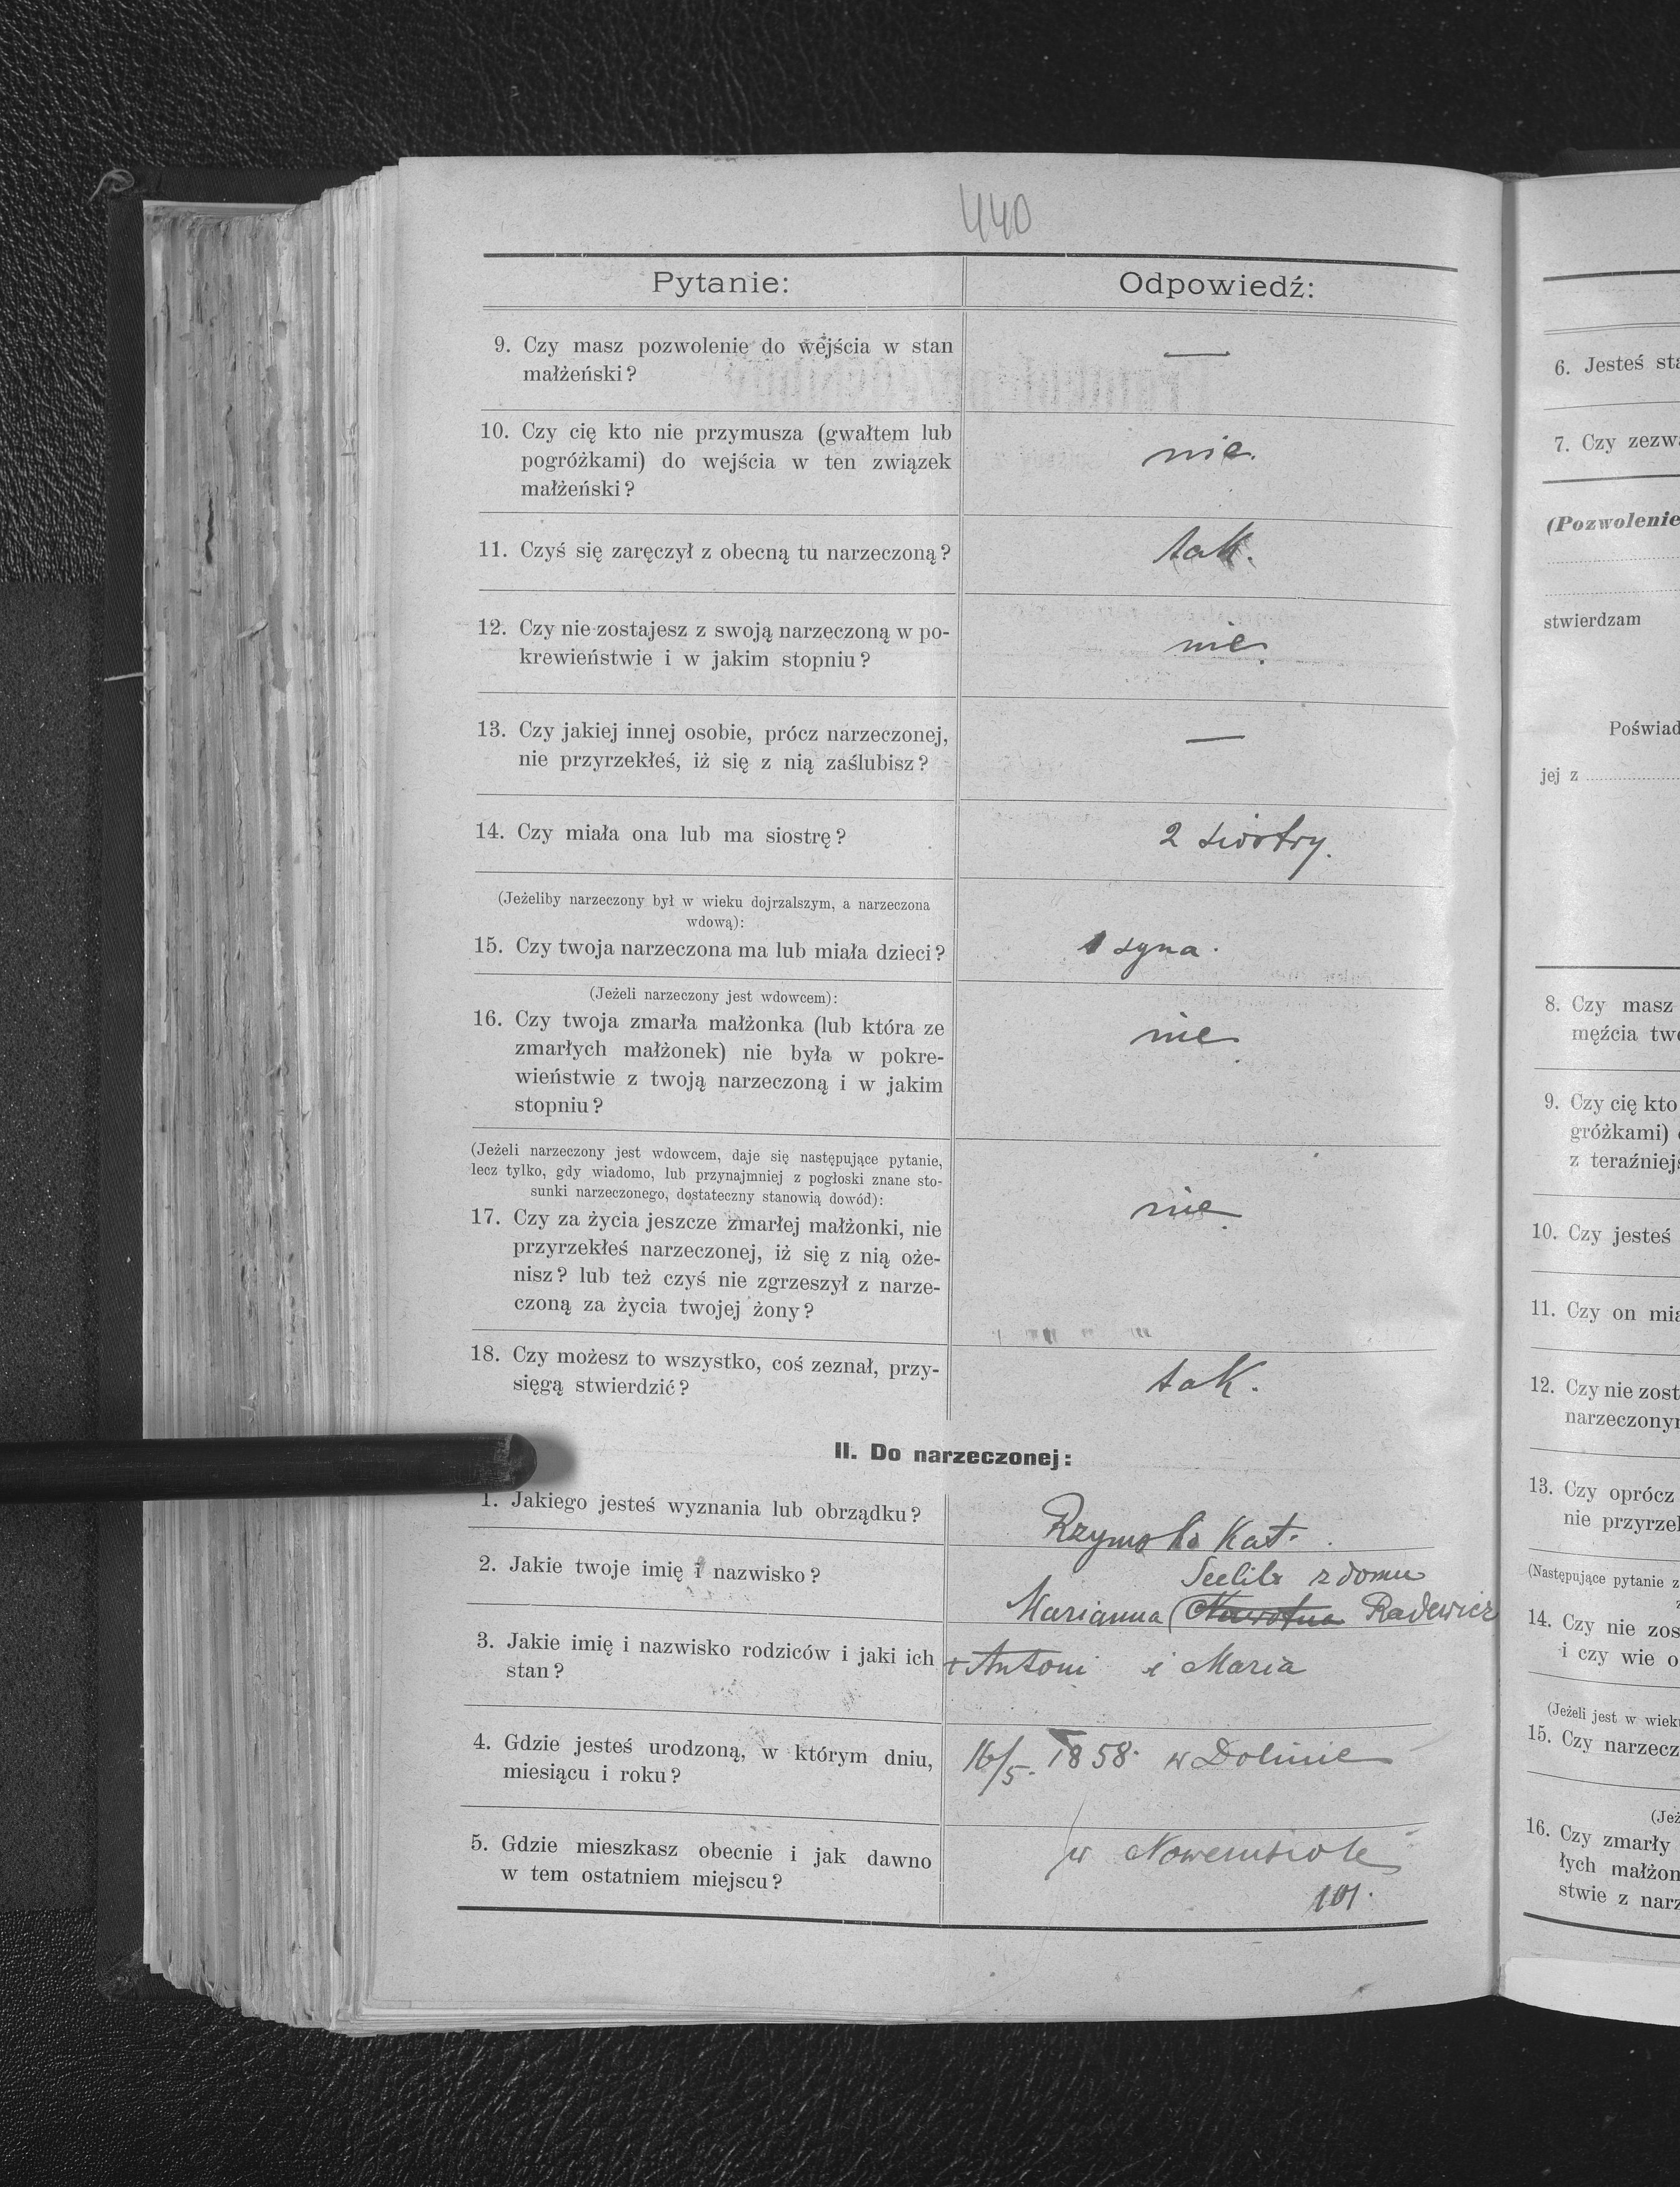 440
Pytanie:
Odpowiedź:
9. Czy masz pozwolenie do wejścia w stan
małżeński?
—
10. Czy cię kto nie przymusza (gwałtem lub
pogróżkami) do wejścia w ten związek
małżeński?
nie.
11. Czyś się zaręczył z obecną tu narzeczoną?
tak.
12. Czy nie zostajesz z swoją narzeczoną w po-
krewieństwie i w jakim stopniu?
nie.
13. Czy jakiej innej osobie, prócz narzeczonej,
nie przyrzekłeś, iż się z nią zaślubisz?
—
14. Czy miała ona lub ma siostrę?
2 siostry.
(Jeżeliby narzeczony był w wieku dojrzalszym, a narzeczona
wdową):
15. Czy twoja narzeczona ma lub miała dzieci?
1 syna.
(Jeżeli narzeczony jest wdowcem):
16. Czy twoja zmarła małżonka (lub która ze
zmarłych małżonek) nie była w pokre-
wieństwie z twoją narzeczoną i w jakim
stopniu?
nie.
(Jeżeli narzeczony jest wdowcem, daje się następujące pytanie,
lecz tylko, gdy wiadomo, lub przynajmniej z pogłoski znane sto-
sunki narzeczonego, dostateczny stanowią dowód):
17. Czy za życia jeszcze zmarłej małżonki, nie
przyrzekłeś narzeczonej, iż się z nią oże-
nisz? lub też czyś nie zgrzeszył z narze-
czoną za życia twojej żony?
nie.
18. Czy możesz to wszystko, coś zeznał, przy-
sięgą stwierdzić?
tak.
II. Do narzeczonej:
1. Jakiego jesteś wyznania lub obrządku?
Kat.
2. Jakie twoje imię i nazwisko?
z domu
Marianna Radewicz
3. Jakie imię i nazwisko rodziców i jaki ich
stan?
+ Antoni i Maria
4. Gdzie jesteś urodzoną, w którym dniu,
miesiącu i roku?
16/5. 1858. w Dolinie
5. Gdzie mieszkasz obecnie i jak dawno
w tem ostatniem miejscu?
w
101.
6. Jesteś
7. Czy
(Pozwolenie
stwierdzam
jej z
8. Czy masz
męźcia
9. Czy cię kto
gróżkami)
z
10. Czy jesteś
11. Czy on
12. Czy nie
13. Czy oprócz
nie
(Następujące pytanie
14. Czy nie
i czy wie
(Jeżeli jest w
15. Czy
16. Czy zmarły
łych
stwie z